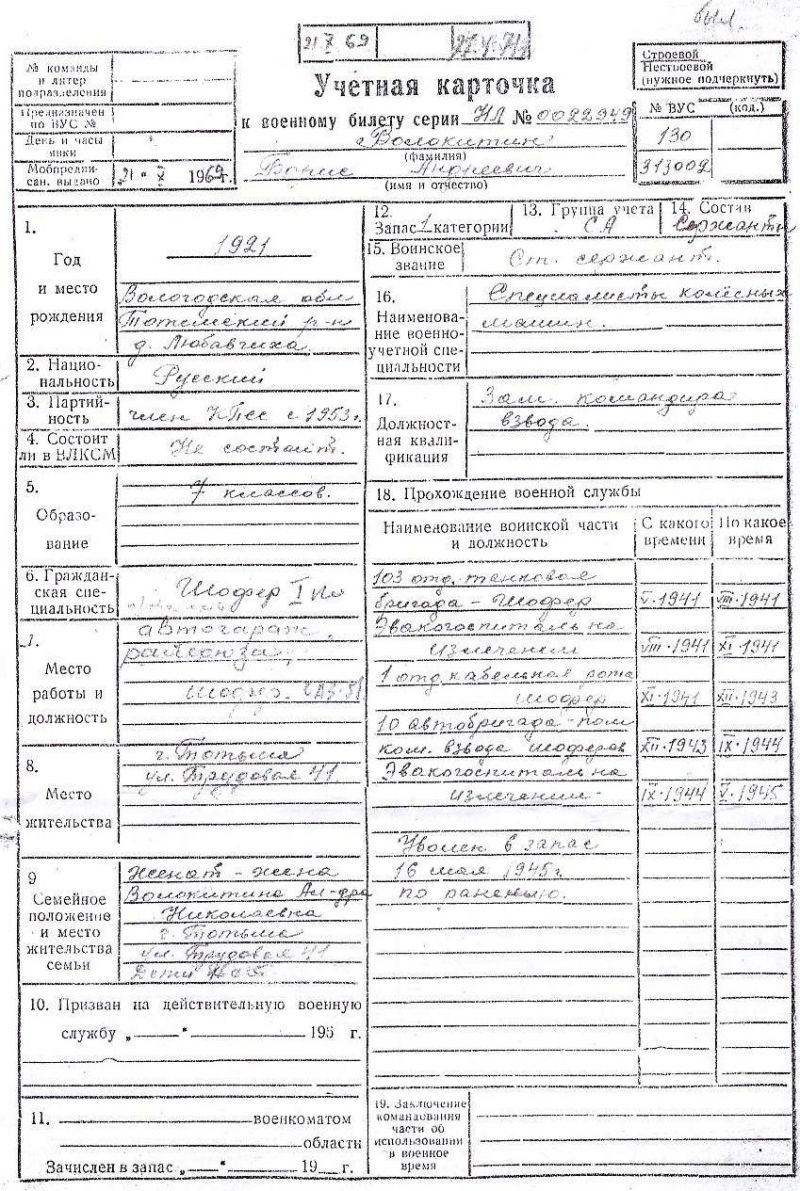 был.
21 X 69
27.V.71
Строевой
Нестроевой
(нужное подчеркнуть)
№ команды
и литер
подразделения
Предназначен
по ВУС №
День и часы
явки
Мобпредпи-
сан. выдано 21 - X 1969г.
Учетная карточка
к военному билету серии НЛ № 0022949
Волокитин
(фамилия)
Борис Андреевич
(имя и отчество)
№ ВУС (код.)
130
313009
1.
Год
и место
рождения
1921
Вологодская обл
Тотемский р-н
д. Любавчиха.
2. Нацио-
нальность Русский
3. Партий-
ность член КПСС с 1953г.
4. Состоит
ли в ВЛКСМ Не состоит.
5.
Образо-
вание
7 классов.
6. Граждан-
ская спе-
циальность Шофер I
7.
Место
работы и
должность
автогараж
райсоюза,
шофер.
8.
Место
жительства
г. Тотьма
ул. Трудовая 41
9
Семейное
положение
и место
жительства
семьи
Женат - жена
Волокитина Ал-дра
Николаевна
г. Тотьма
ул. Трудовая 41
Дети
10. Призван на действительную военную
службу „ — “ 195 г.
11. военкоматом
области
Зачислен в запас „ — “ 19 г.
12.
Запас 1 категории
13. Группа учета
СА
14. Состав
Сержанты
15. Воинское
звание Ст. сержант.
16.
Наименова-
ние военно-
учетной спе-
циальности
Специалисты колёсных
машин.
17.
Должност-
ная квали-
фикация
Зам. командира
взвода.
18. Прохождение военной службы
Наименование воинской части
и должность
С какого
времени
По какое
время
103 отд. танковая
бригада - Шофер V·1941 VIII·1941
Эвакогоспиталь на
излечении VIII·1941 XI·1941
1 отд. кабельная рота
шофер XI·1941 XII·1943
10 автобригада - пом
ком. взвода шоферов XII·1943 IX·1944
Эвакогоспиталь на
излечении - IX·1944 V·1945
Уволен в запас
16 мая 1945г.
по раненью.
19. Заключение
командования
части об
использовании
в военное
время